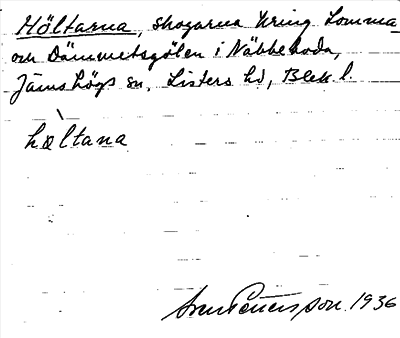 Höltarna, skogarna kring Lomma-
och Dämmetsgölen i Näbbeboda,
Jämshögs sn, Listers hd, Blek. l.
hæltana
Sven Petersson 1936